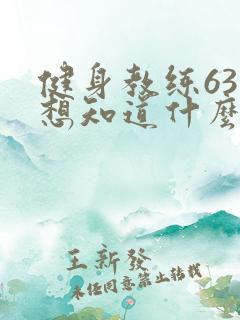 健身教练63
想知道什麼
王新發
未经同意禁止转载